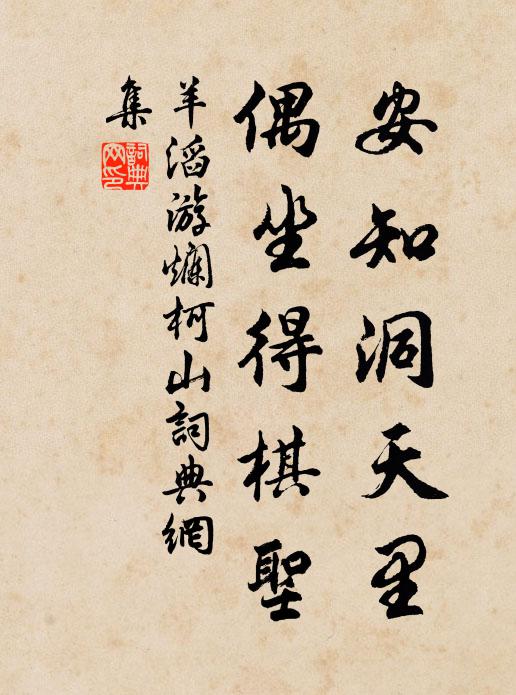 安知洞天里
偶坐得棋聖
羊滔游爛柯山詞典網
集
詞典
网印